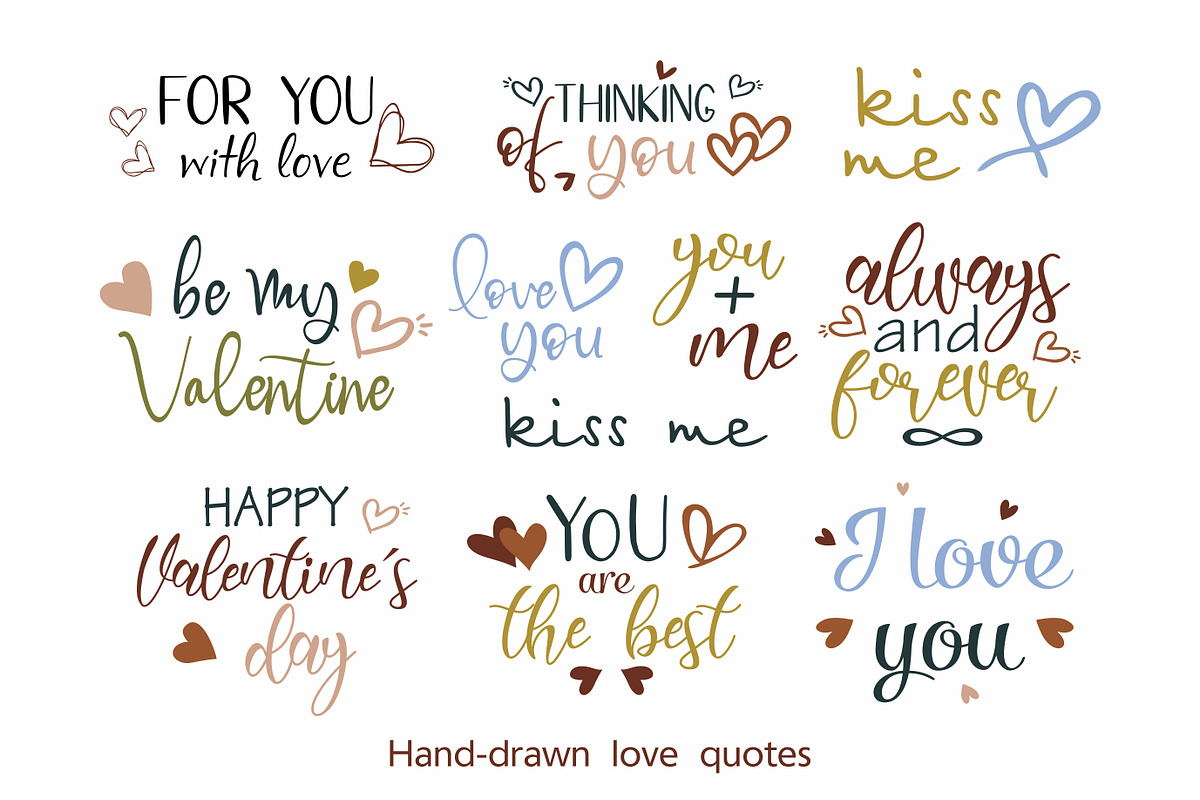 FOR YOU
with love
THINKING
of you
kiss
me
be my
Valentine
love
you
you
+
me
kiss me
always
and
forever
HAPPY
Valentine's
day
YOU
are
the best
I love
you
Hand-drawn love quotes